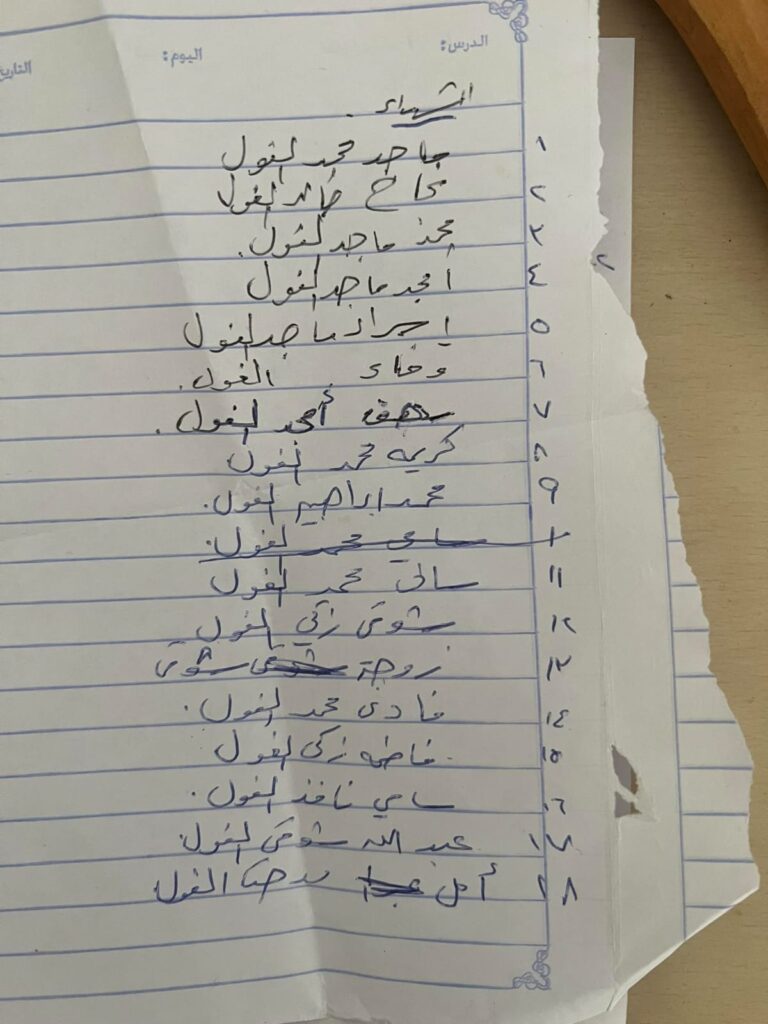 الدرس: اليوم: التاريخ
الشهداء.
١ ماجد محمد الغول
٢ نجاح خالد الغول
٣ محمد ماجد الغول.
٤ أمجد ماجد الغول
٥ إسراء ماجد الغول
٦ وفاء الغول.
٧ أمجد الغول.
٨ كريمه محمد الغول
٩ محمد ابراهيم الغول.
١٠ سامي محمد الغول.
١١ سالي محمد الغول
١٢ شوقي زكي الغول
١٣ زوجة شوقي شوقي
١٤ فادي محمد الغول.
١٥ فاطمه زكي الغول
١٦ سامي نافذ الغول.
١٧ عبد الله شوقي الغول.
١٨ أمل الغول